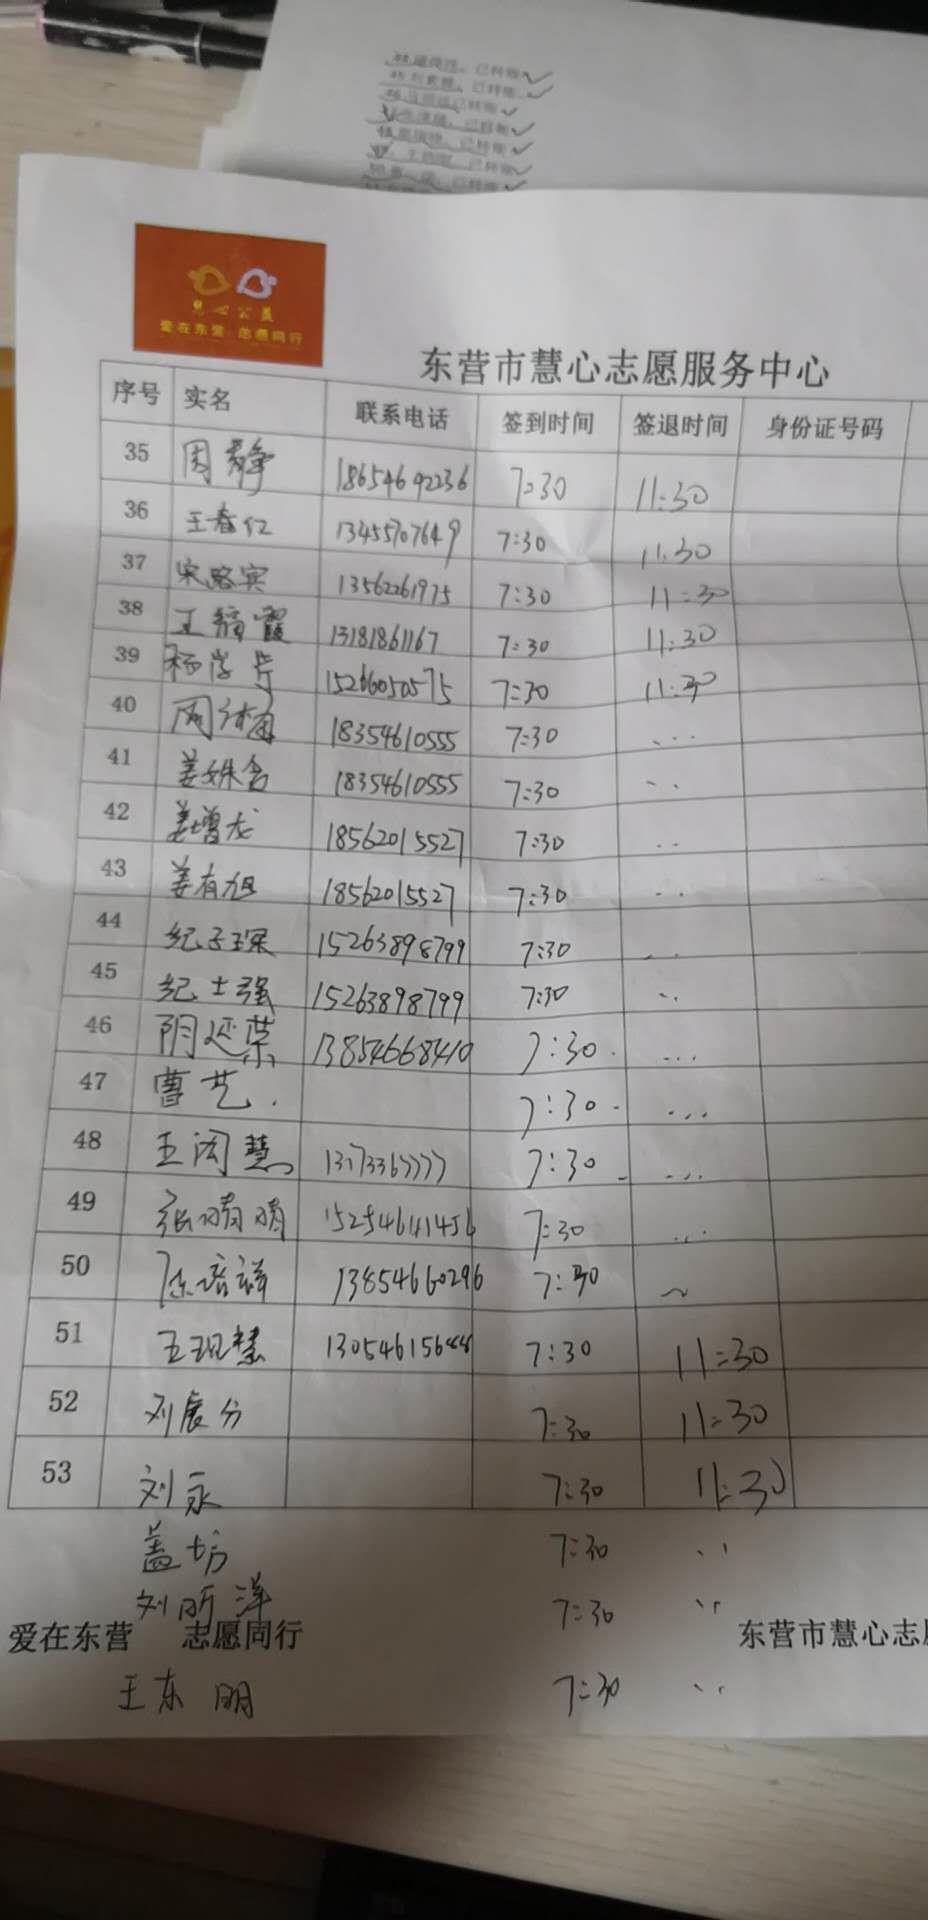 已转账
已转账
已转账
已转账
已转账
已转账
已转账
慧心公益
爱在东营 志愿同行
东营市慧心志愿服务中心
序号 实名 联系电话 签到时间 签退时间 身份证号码
35 周静 18654692236 7:30 11:30
36 王春仁 13455707649 7:30 11:30
37 宋路宾 13562261975 7:30 11:30
38 王瑞霞 13181861167 7:30 11:30
39 15266050575 7:30 11:30
40 18354610555 7:30 ...
41 姜姝含 18354610555 7:30 ..
42 姜增龙 18562015527 7:30 ..
43 姜有旭 18562015527 7:30 ..
44 纪子琛 15263898799 7:30 ..
45 纪士强 15263898799 7:30 ..
46 阴延荣 13854668410 7:30. ...
47 曹艺. 7:30. ...
48 王闵慧 7:30 ...
49 张晴晴 7:30 ...
50 陈培祥 13854660296 7:30 ~
51 王现慧 7:30 11:30
52 刘展分 7:30 11:30
53 刘永 7:30 11:30
盖坊 7:30 ..
刘昕洋 7:30 ..
爱在东营 志愿同行 东营市慧心志
王东明 7:30 ..